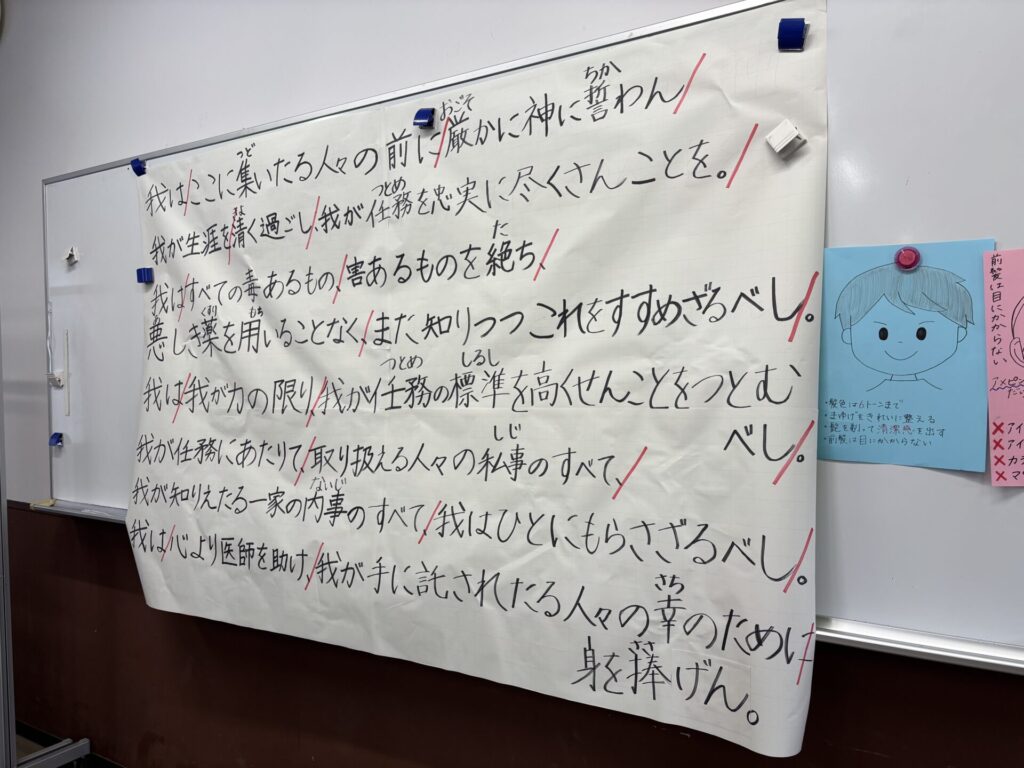 我は/ここに集いたる人々の前に/厳かに神に誓わん/
我が生涯を/清く過ごし、/我が任務を忠実に尽くさんことを。/
我は/すべての毒あるもの、/害あるものを絶ち、/
悪しき薬を用いることなく、/また知りつつこれをすすめざるべし。/
我は/我が力の限り、/我が任務の標準を高くせんことをつとむ
べし。/
我が任務にあたりて、/取り扱える人々の私事のすべて、/
我が知りえたる一家の内事のすべて、/我はひとにもらさざるべし。/
我は/心より医師を助け、/我が手に託されたる人々の幸のために/
身を捧げん。
・髪色は6トーンまで
・まゆげをきれいに整える
・髭を剃って清潔感を出す
・前髪は目にかからない
前髪は目にかからない